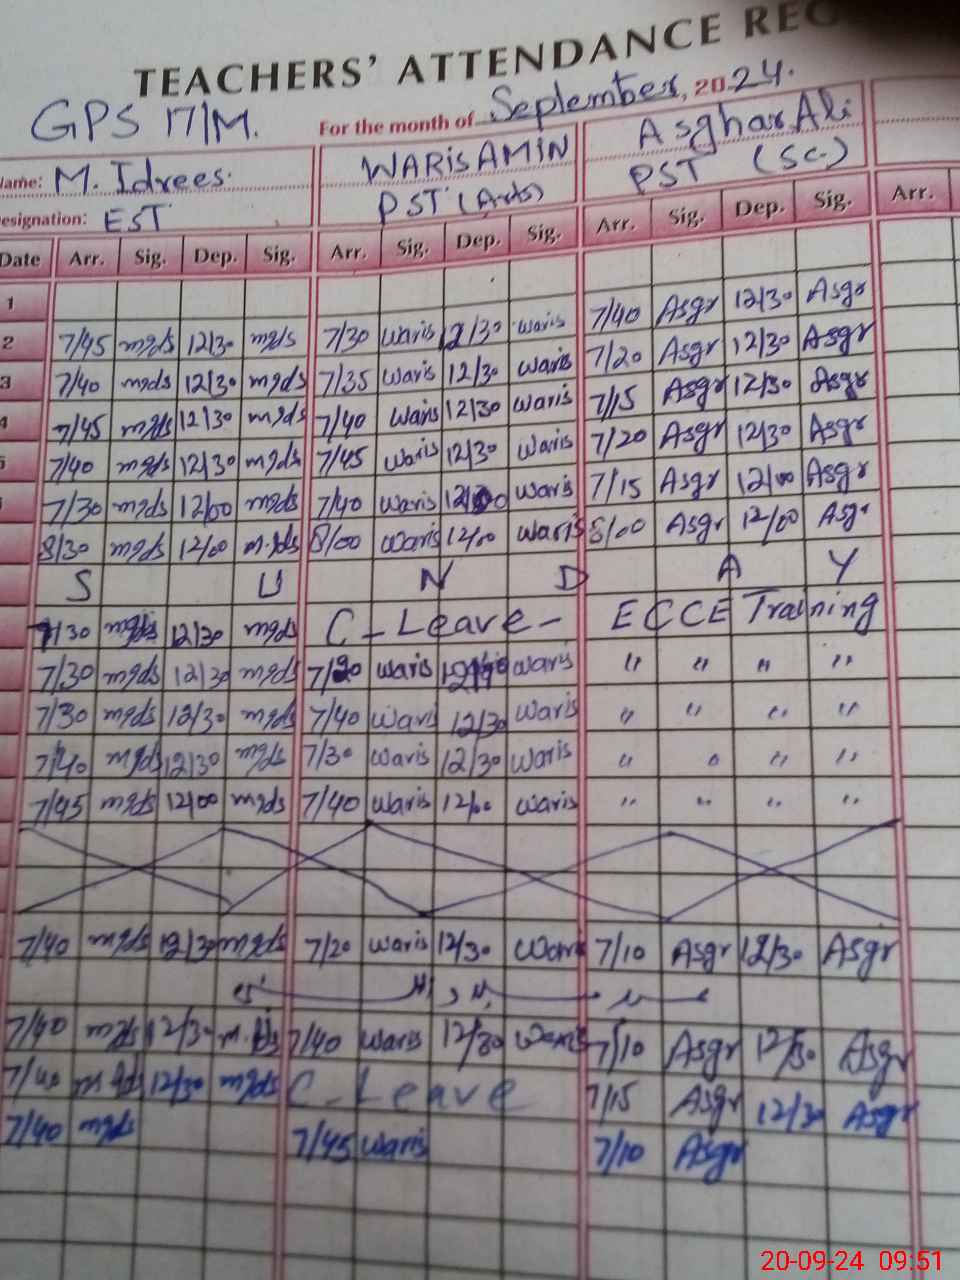 TEACHERS' ATTENDANCE REC
GPS 17/M. For the month of September, 2024.
Name: M. Idrees. WARIS AMIN Asghar Ali
Designation: EST PST (Arts) PST (Sc.)
Date Arr. Sig. Dep. Sig. Arr. Sig. Dep. Sig. Arr. Sig. Dep. Sig. Arr.
1
2 7/45 mgds 12/30 mgds 7/30 Waris 12/30 Waris 7/40 Asgr 12/30 Asgr
3 7/40 mgds 12/30 mgds 7/35 Waris 12/30 Waris 7/20 Asgr 12/30 Asgr
4 7/45 mgds 12/30 mgds 7/40 Waris 12/30 Waris 7/15 Asgr 12/30 Asgr
5 7/40 mgds 12/30 mgds 7/45 Waris 12/30 Waris 7/20 Asgr 12/30 Asgr
7/30 mgds 12/00 mgds 7/40 Waris 12/00 Waris 7/15 Asgr 12/00 Asgr
8/30 mgds 12/00 m.gds 8/00 Waris 12/00 Waris 8/00 Asgr 12/00 Asgr
S U N D A Y
7/30 mgds 12/30 mgds C - Leave - ECCE Training
7/30 mgds 12/30 mgds 7/20 Waris Waris " " " "
7/30 mgds 12/30 mgds 7/40 Waris 12/30 Waris " " " "
7/40 mgds 12/30 mgds 7/30 Waris 12/30 Waris " " " "
7/45 mgds 12/00 mgds 7/40 Waris 12/00 Waris " " " "
7/40 mgds 12/30 mgds 7/20 Waris 12/30 Waris 7/10 Asgr 12/30 Asgr
7/40 mgds 12/30 m.gds 7/40 Waris 12/30 Waris 7/10 Asgr 12/30 Asgr
7/40 m gds 12/30 mgds C - Leave 7/15 Asgr 12/30 Asgr
7/40 mgds 7/45 Waris 7/10 Asgr
20-09-24 09:51